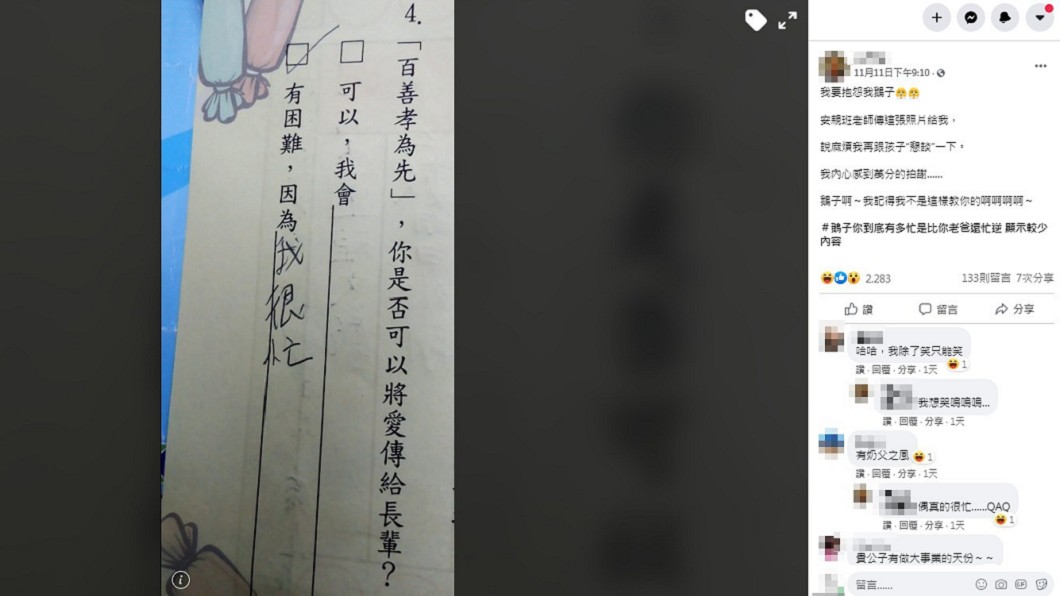 4.
「百善孝為先」，你是否可以將愛傳給長輩？
可以，我會
有困難，因為我很忙
11月11日下午9:10
我要抱怨我鵝子
安親班老師傳這張照片給我，
說麻煩我再跟孩子"懇談"一下。
我內心感到萬分的拍謝......
鵝子啊～我記得我不是這樣教你的啊啊啊啊～
#鵝子你到底有多忙是比你老爸還忙逆 顯示較少內容
2,283
133則留言 7次分享
讚 留言 分享
哈哈，我除了笑只能笑
1
讚·回覆·分享·1天
我想哭嗚嗚嗚...
讚·回覆·分享·1天
有奶父之風
1
讚·回覆·分享·1天
偶真的很忙......QAQ
1
讚·回覆·分享·1天
貴公子有做大事業的天份～～
留言......